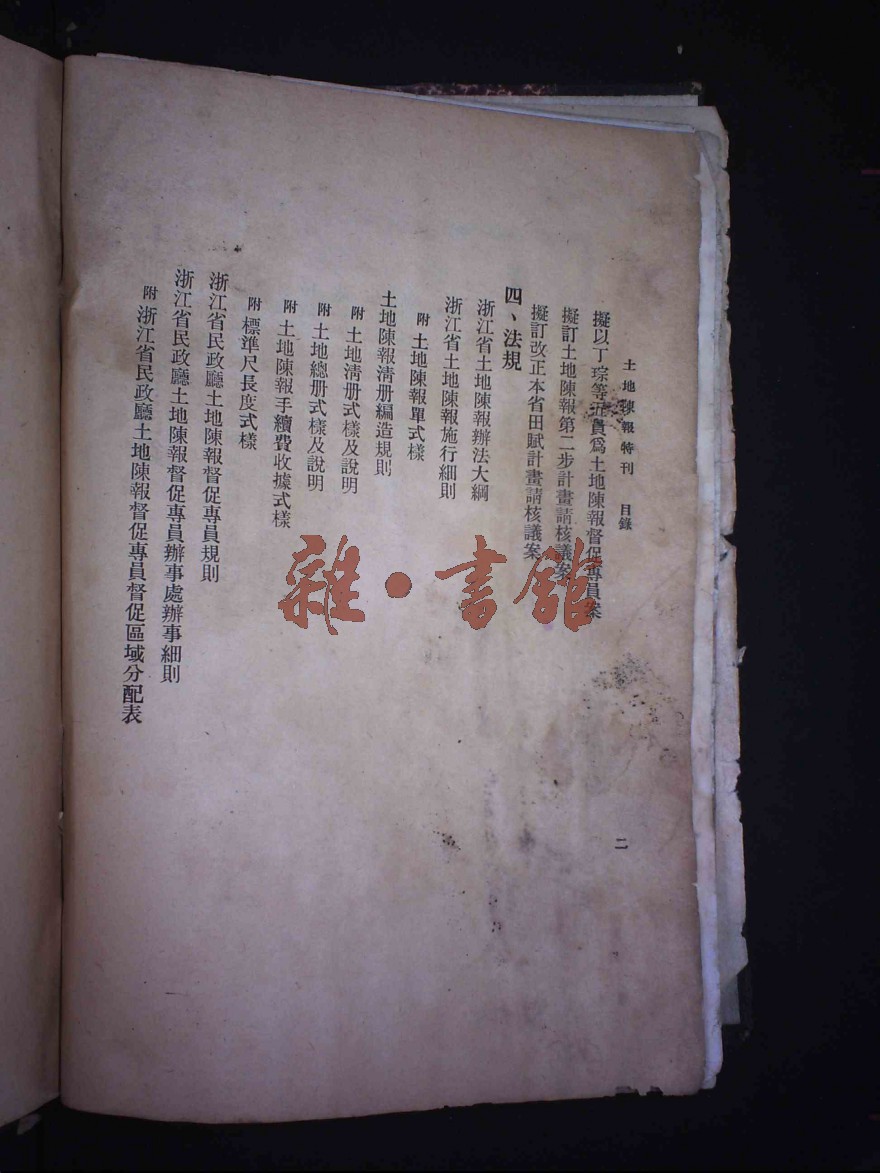 土地陳報特刊 目錄
擬以丁琮等五員爲土地陳報督促專員案
擬訂土地陳報第二步計畫請核議案
擬訂改正本省田賦計畫請核議案
四、法規
浙江省土地陳報辦法大綱
浙江省土地陳報施行細則
附 土地陳報單式樣
土地陳報淸册編造規則
附 土地淸册式樣及說明
附 土地總册式樣及說明
附 土地陳報手續費收據式樣
附 標準尺長度式樣
浙江省民政廳土地陳報督促專員規則
浙江省民政廳土地陳報督促專員辦事處辦事細則
附 浙江省民政廳土地陳報督促專員督促區域分配表
二
雜·書館